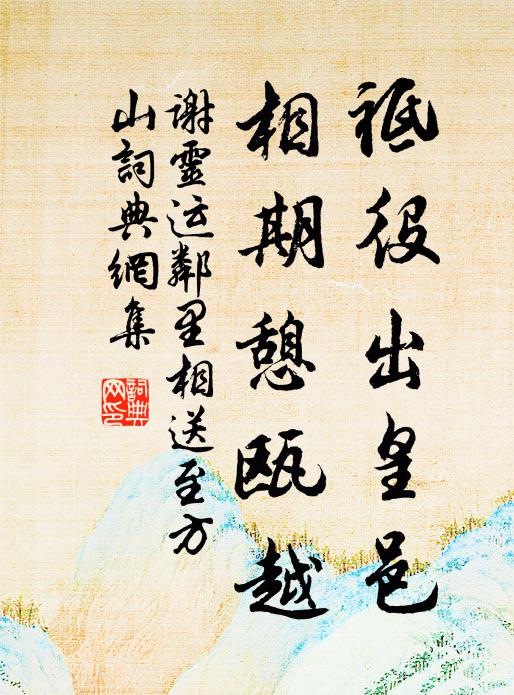 祗役出皇邑
相期憩瓯越
謝靈运鄰里相送至方
山詞典網集
詞典
网印